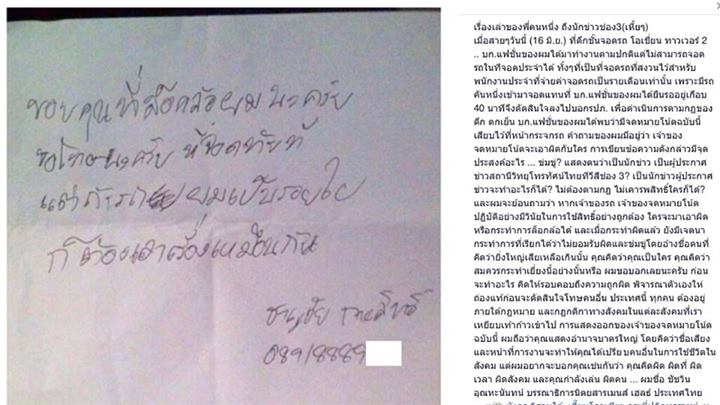 ขอบคุณที่ล๊อคล้อผมนะครับ
ขอโทษนะครับ ที่จอดทับที่
แต่ถ้ารถ ผมเป็นรอยใด
ก็ต้องเอาเรื่องเหมือนกัน
0891888
เรื่องเล่าของพี่คนหนึ่ง ถึงนักข่าวช่อง3(เหี้ยๆ)
เมื่อสายๆวันนี้ (16 มิ.ย.) ที่ตึกชั้นจอดรถ โอเชี่ยน ทาวเวอร์ 2
.. บก.แฟชั่นของผมได้มาทำงานตามปกติแต่ไม่สามารถจอด
รถในที่จอดประจำได้ ทั้งๆที่เป็นที่จอดรถที่สงวนไว้สำหรับ
พนักงานประจำที่จ่ายค่าจอดรถเป็นรายเดือนเท่านั้น เพราะมีรถ
คันหนึ่งเข้ามาจอดแทนที่ บก.แฟชั่นของผมได้ยืนรออยู่เกือบ
40 นาทีจึงตัดสินใจลงไปบอกรปภ. เพื่อดำเนินการตามกฎของ
ตึก ตกเย็น บก.แฟชั่นของผมได้พบว่ามีจดหมายโน้ตฉบับนี้
เสียบไว้ที่หน้ากระจกรถ คำถามของผมมีอยู่ว่า เจ้าของ
จดหมายโน้ตจะเอาผิดกับใคร การเขียนข้อความดังกล่าวมีจุด
ประสงค์อะไร ... ข่มขู่? แสดงตนว่าเป็นนักข่าว เป็นผู้ประกาศ
ข่าวสถานีวิทยุโทรทัศน์ไทยทีวีสีช่อง 3? เป็นนักข่าวผู้ประกาศ
ข่าวจะทำอะไรก็ได้? ไม่ต้องตามกฎ ไม่เคารพสิทธิ์ใครก็ได้?
และผมจะย้อนถามว่า หากเจ้าของรถ เจ้าของจดหมายโน้ต
ปฏิบัติอย่างมีวินัยในการใช้สิทธิ์อย่างถูกต้อง ใครจะมาเอาผิด
หรือกระทำการล้อกล้อได้ และเมื่อกระทำผิดแล้ว ยังมีเจตนา
กระทำการที่เรียกได้ว่าไม่ยอมรับผิดและข่มขู่โดยอ้างชื่อตนที่
คิดว่ายิ่งใหญ่เสียเหลือเกินนั้น คุณคิดว่าคุณเป็นใคร คุณคิดว่า
สมควรกระทำเยี่ยงนี้อย่างนั้นหรือ ผมขอบอกเลยนะครับ ก่อน
จะทำอะไร คิดให้รอบคอบถึงความถูกผิด พิจารณาตัวเองให้
ถ่องแท้ก่อนจะตัดสินใจโทษคนอื่น ประเทศนี้ ทุกคน ต้องอยู่
ภายใต้กฎหมาย และกฎกติกาทางสังคมในแต่ละสังคมที่เรา
เหยียบเท้าก้าวเข้าไป การแสดงออกของเจ้าของจดหมายโน้ต
ฉบับนี้ ผมถือว่าคุณแสดงอำนาจบาตรใหญ่ โดยคิดว่าชื่อเสียง
และหน้าที่การงานจะทำให้คุณได้เปรียบคนอื่นในการใช้ชีวิตใน
สังคม แต่ผมอยากจะบอกคุณเช่นกันว่า คุณคิดผิด ผิดที่ ผิด
เวลา ผิดสังคม และคุณกำลังเล่น ผิดคน ... ผมชื่อ ชัชวิน
อุณหะนันทน์ บรรณาธิการนิตยสารเมนส์ เฮลธ์ ประเทศไทย